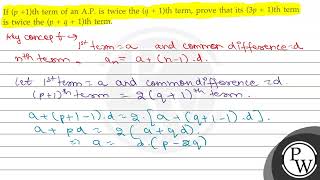 If (p +1)th term of an A.P. is twice the (q + 1)th term, prove that its (3p + 1)th term
is twice the (p + q + 1)th term.
Key concept → 1st term = a and common difference = d
nth term → an = a + (n-1).d.
Let 1st term = a and common difference = d.
(p+1)th term = 2(q+1)th term.
a + (p+1-1).d = 2.[a + (q+1-1).d].
a + pd = 2(a + qd).
⇒ a = d.(p-2q)
PW